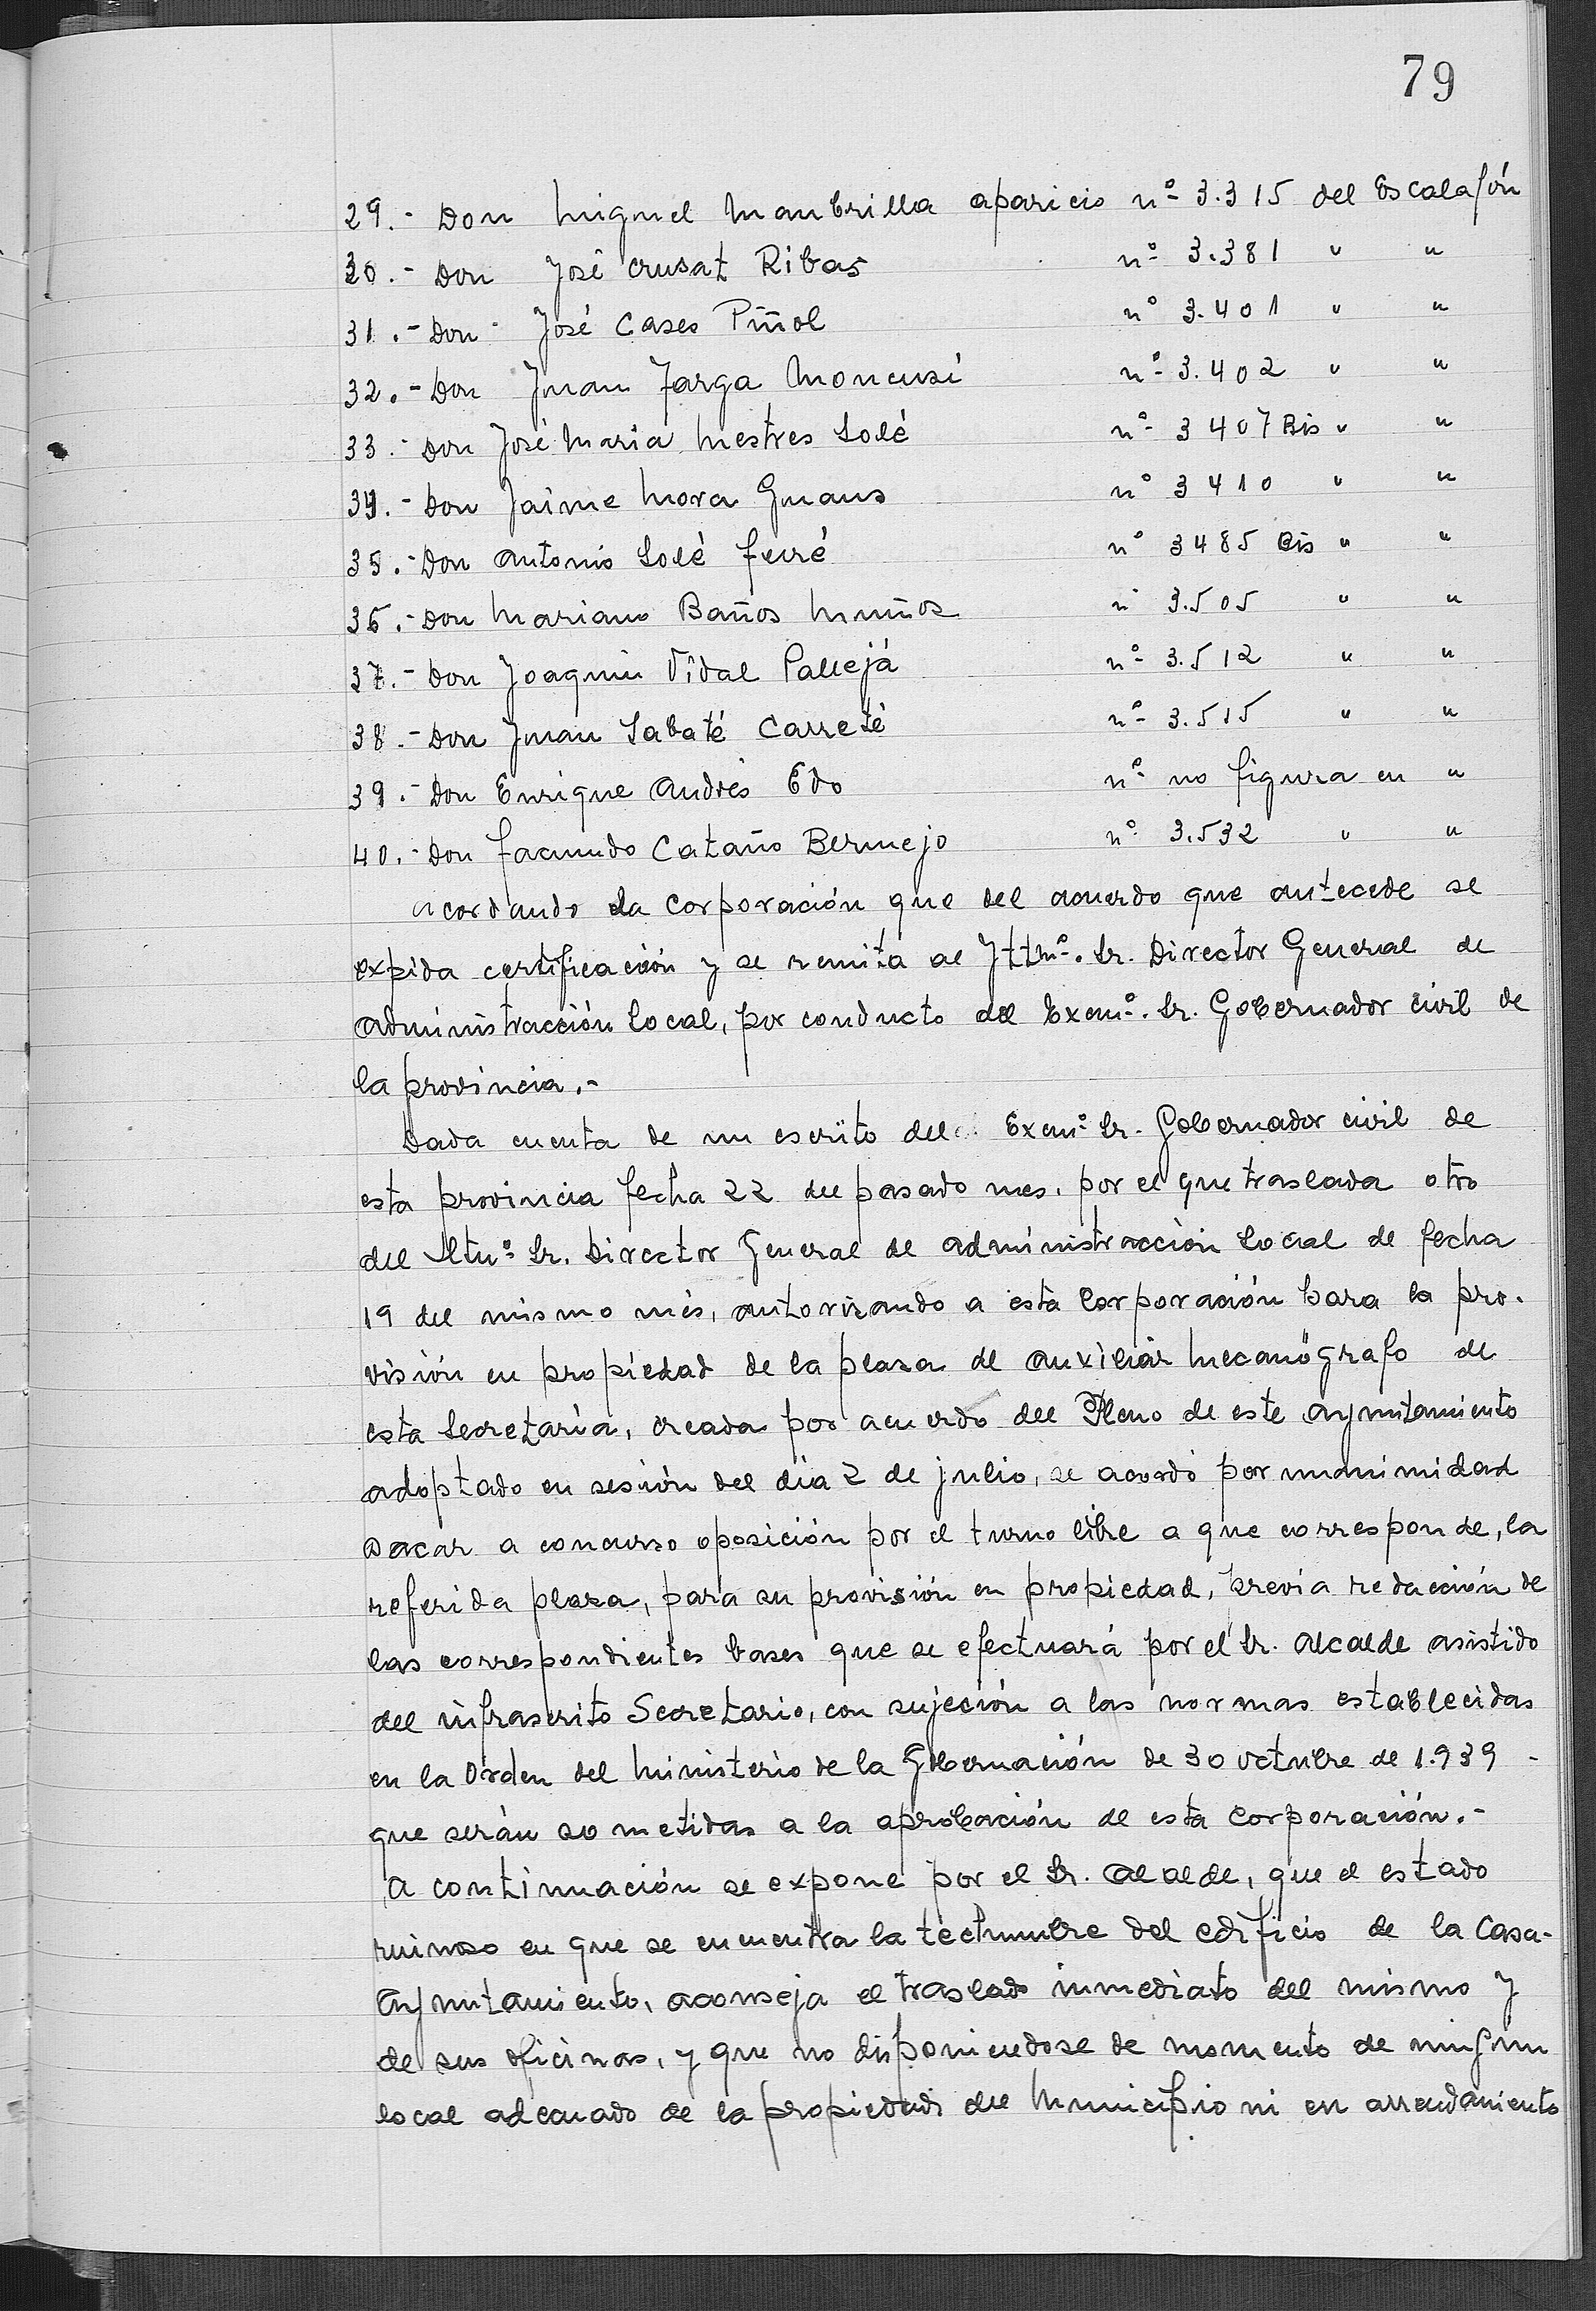 79
29.- Don Miguel Mambrilla Aparicio nº 3.315 del Escalafón
30.- Don José Crusat Ribas nº 3.381 " "
31.- Don José Cases Piñol nº 3.401 " "
32.- Don Juan Farga Moncusí nº 3.402 " "
33.- Don José Maria Mestres Solé nº 3407 Bis " "
34.- Don Jaime Mora Guaus nº 3410 " "
35.- Don Antonio Solé Ferré nº 3485 Bis " "
36.- Don Mariano Baños Muñoz nº 3.505 " "
37.- Don Joaquin Vidal Pallejá nº 3.512 " "
38.- Don Juan Sabaté Carreté nº 3.515 " "
39.- Don Enrique Andrés Edo nº no figura en "
40.- Don Facundo Cataño Bermejo nº 3.532 " "
acordando la Corporación que del acuerdo que antecede se
expida certificación y se remita al Iltmº. Sr. Director General de
Administración Local, por conducto del Excmº. Sr. Gobernador civil de
la provincia.-
Dada cuenta de un escrito del Excmº Sr. Gobernador civil de
esta provincia fecha 22 del pasado mes, por el que traslada otro
del Iltmº Sr. Director General de Administración Local de fecha
19 del mismo més, autorizando a esta Corporación para la pro-
visión en propiedad de la plaza de Auxiliar Mecanógrafo de
esta Secretaría, creada por acuerdo del Pleno de este Ayuntamiento
adoptado en sesión del día 2 de julio, se acordó por unanimidad
sacar a concurso oposición por el turno libre a que corresponde, la
referida plaza, para su provisión en propiedad, previa redacción de
las correspondientes bases que se efectuará por el Sr. Alcalde asistido
del infrascrito Secretario, con sujeción a las normas establecidas
en la Orden del Ministerio de la Gobernación de 30 octubre de 1.939 -
que serán sometidas a la aprobación de esta Corporación.-
A continuación se expone por el Sr. Alcalde, que el estado
ruinoso en que se encuentra la techumbre del edificio de la Casa-
Ayuntamiento, aconseja el traslado inmediato del mismo y
de sus oficinas, y que no disponiendose de momento de ningun
local adecuado de la propiedad del Municipio ni en arrendamiento